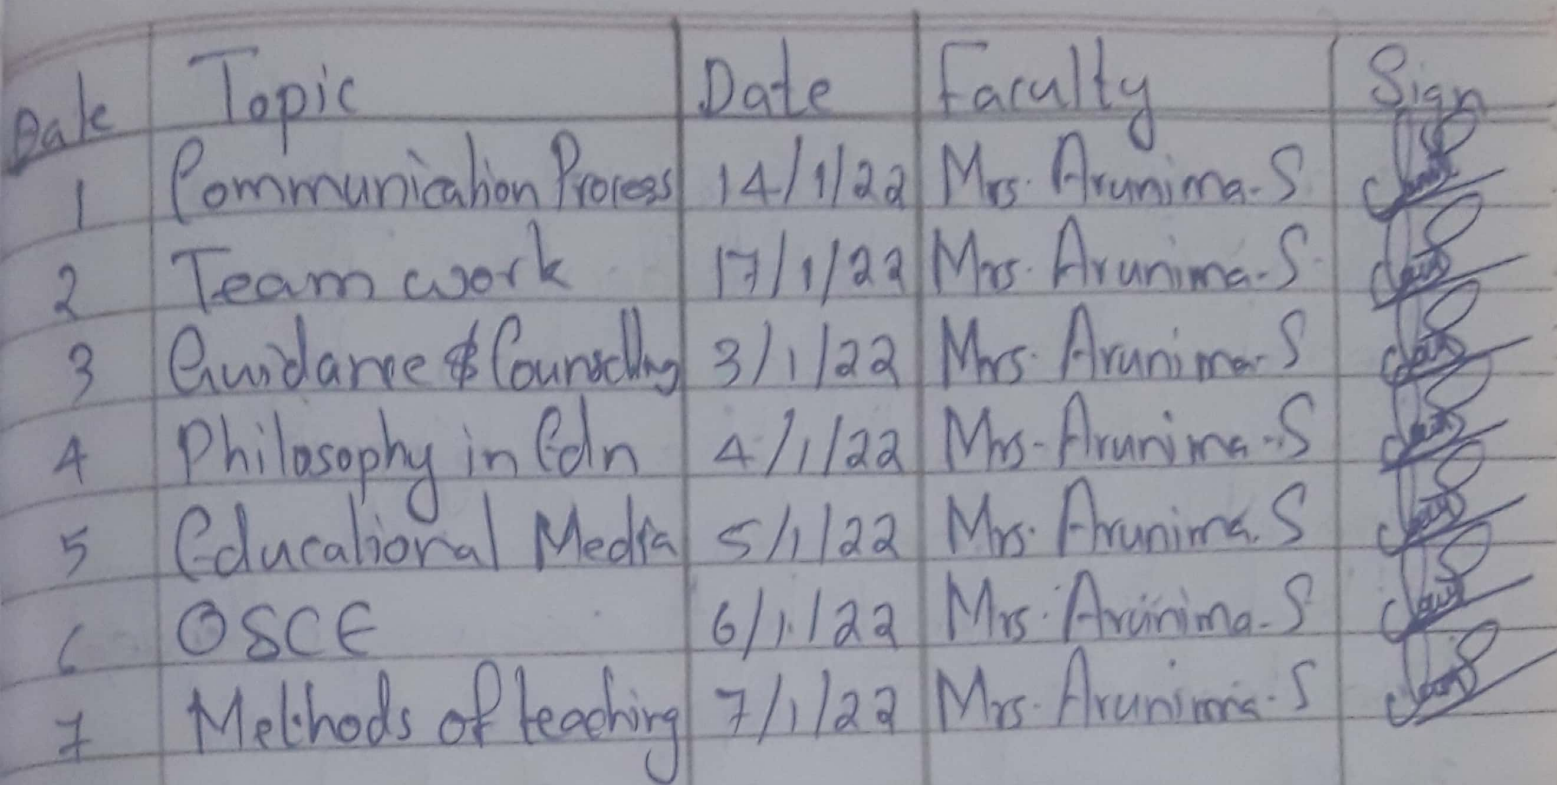 Date Topic Date Faculty Sign
1 Communication Process 14/1/22 Mrs. Arunima.S
2 Team work 17/1/22 Mrs. Arunima.S
3 Guidance & Counselling 3/1/22 Mrs. Arunima.S
4 Philosophy in Edn 4/1/22 Mrs. Arunima.S
5 Educational Media 5/1/22 Mrs. Arunima.S
6 OSCE 6/1/22 Mrs. Arunima.S
7 Methods of teaching 7/1/22 Mrs. Arunima.S